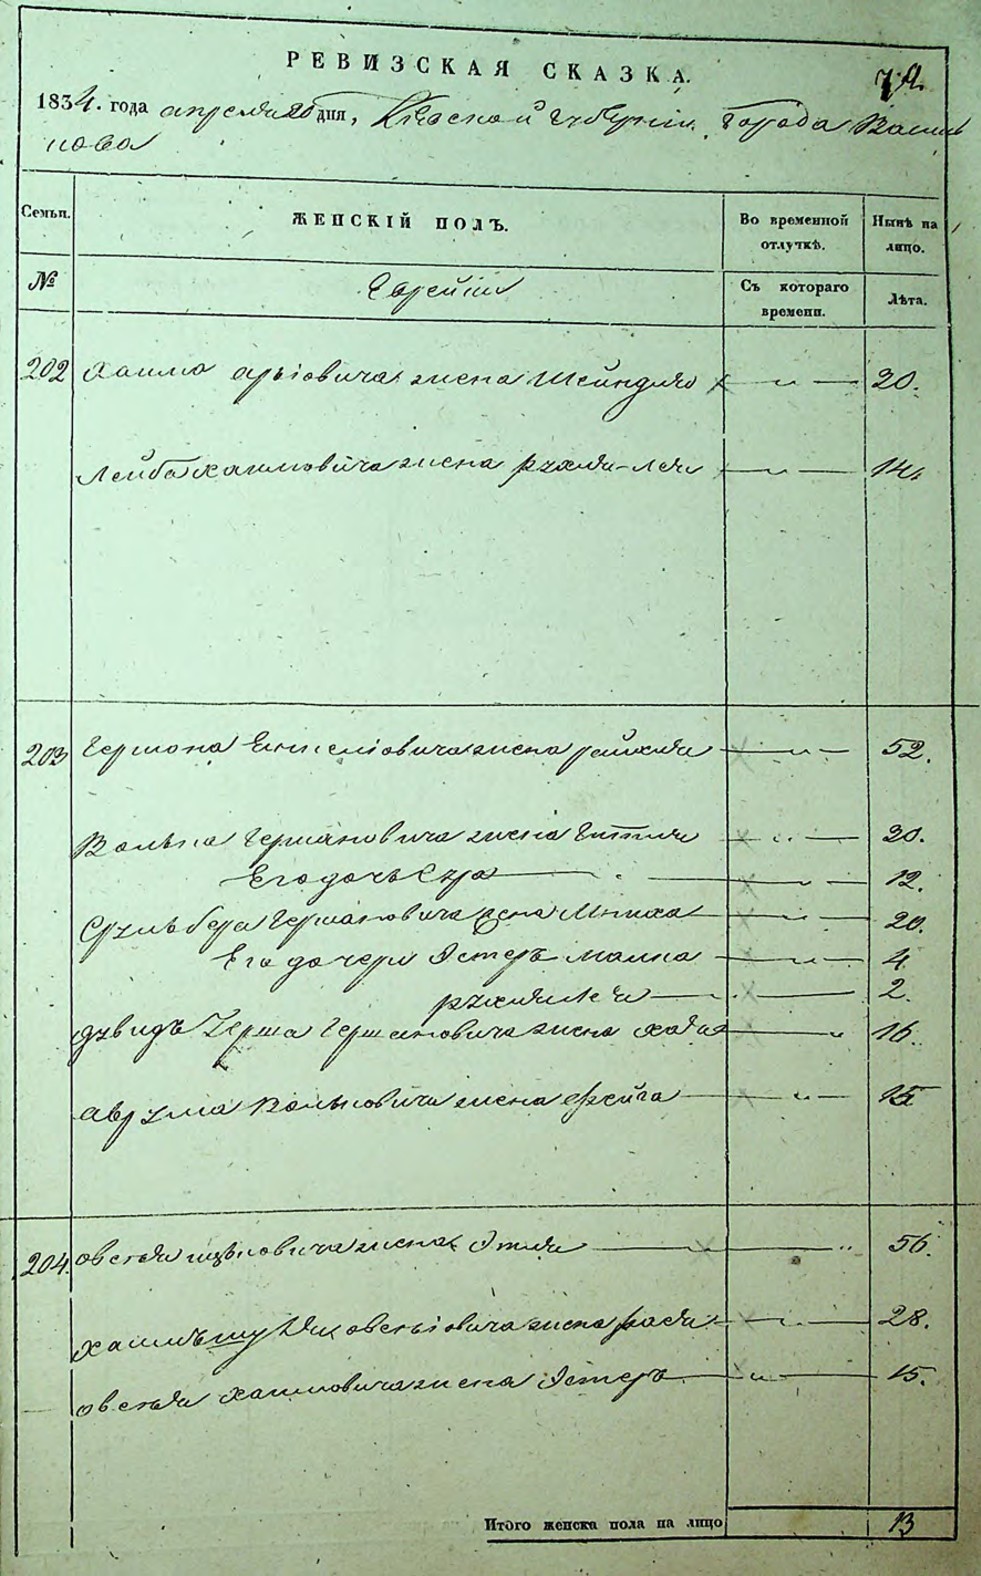 РЕВИЗСКАЯ СКАЗКА.
1834. года апреля 20 дня, Киевской губернии города Василь
кова
Семьи. ЖЕНСКІЙ ПОЛЪ. Во временной отлучкѣ. Нынѣ на лицо.
№ Еврейки Съ котораго времени. Лѣта.
202 Хаима Арьіовича жена Шейндля — „ — 30.
Лейба Хаимовича жена Рухля-Лея — „ — 14.
203 Гершона жена Рейхля — „ — 52.
Волька Гершоновича жена Гитля — „ — 30.
Его дочь Сура — „ — 12.
Срульбера Гершоновича жена — „ — 20.
Его дочери Эстеръ Малка — „ — 4.
Рухля Лея — „ — 2.
Дувидъ Герша Гершоновича жена — „ 16.
Аврума Вольковича жена Фейга — „ — 15
204. Овсея Ицьковича жена Этля — „ 56.
Овсеьіовича жена Рася — „ — 28.
Овсея Хаимовича жена Эстеръ — „ — 15.
Итого женска пола на лицо 13